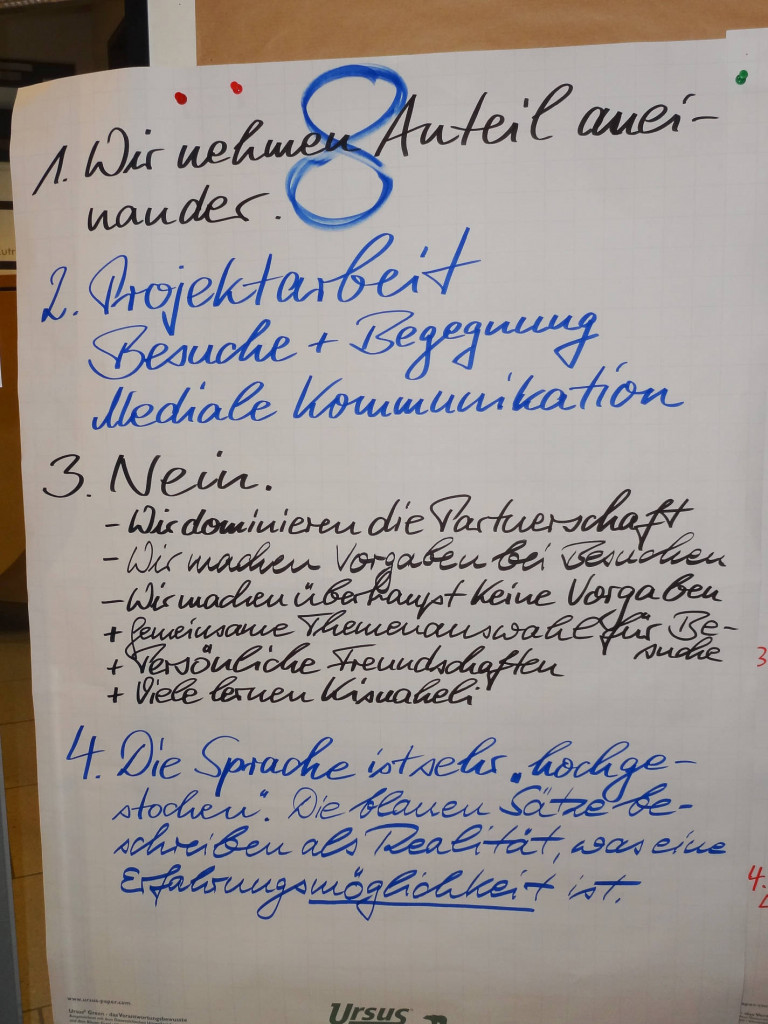 8
1. Wir nehmen Anteil anei-
nander.
2. Projektarbeit
Besuche + Begegnung
Mediale Kommunikation
3. Nein.
- Wir dominieren die Partnerschaft
- Wir machen Vorgaben bei Besuchen
- Wir machen überhaupt keine Vorgaben
+ gemeinsame Themenauswahl für Be-
suche
+ Persönliche Freundschaften
+ Viele lernen Kisuaheli
4. Die Sprache ist sehr „hochge-
stochen". Die blauen Sätze be-
schreiben als Realität, was eine
Erfahrungsmöglichkeit ist.
3
4.
www.ursus-paper.com
Ursus